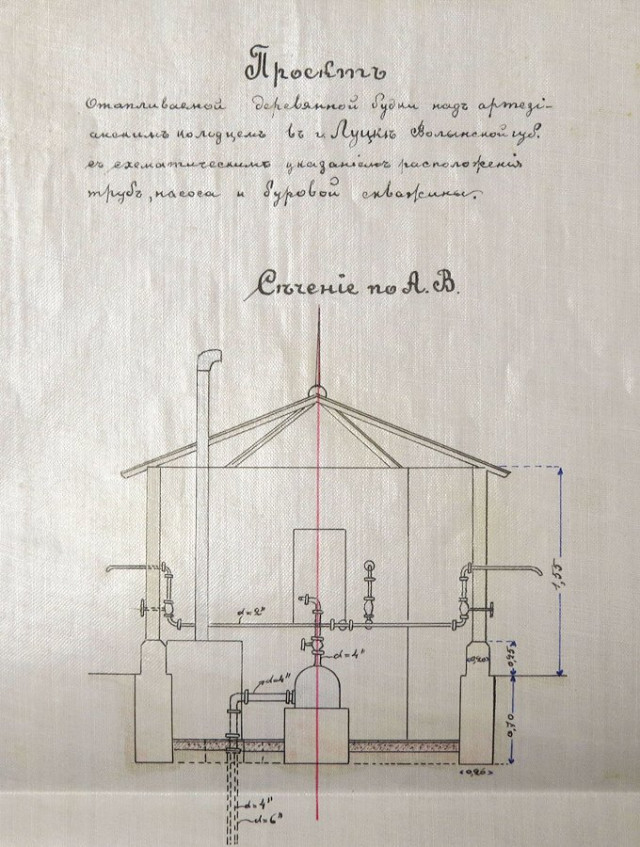 Проектъ
Отапливаемой деревянной будки надъ артезі-
анскимъ колодцемъ въ г. Луцкѣ Волынской губ.
съ схематическимъ указаніемъ расположенія
трубъ, насоса и буровой скважины.
Сѣченіе по А. В.
1,55
d=2"
d=4"
0,45
0,20
d=4"
0,70
0,20
d=4"
d=6"